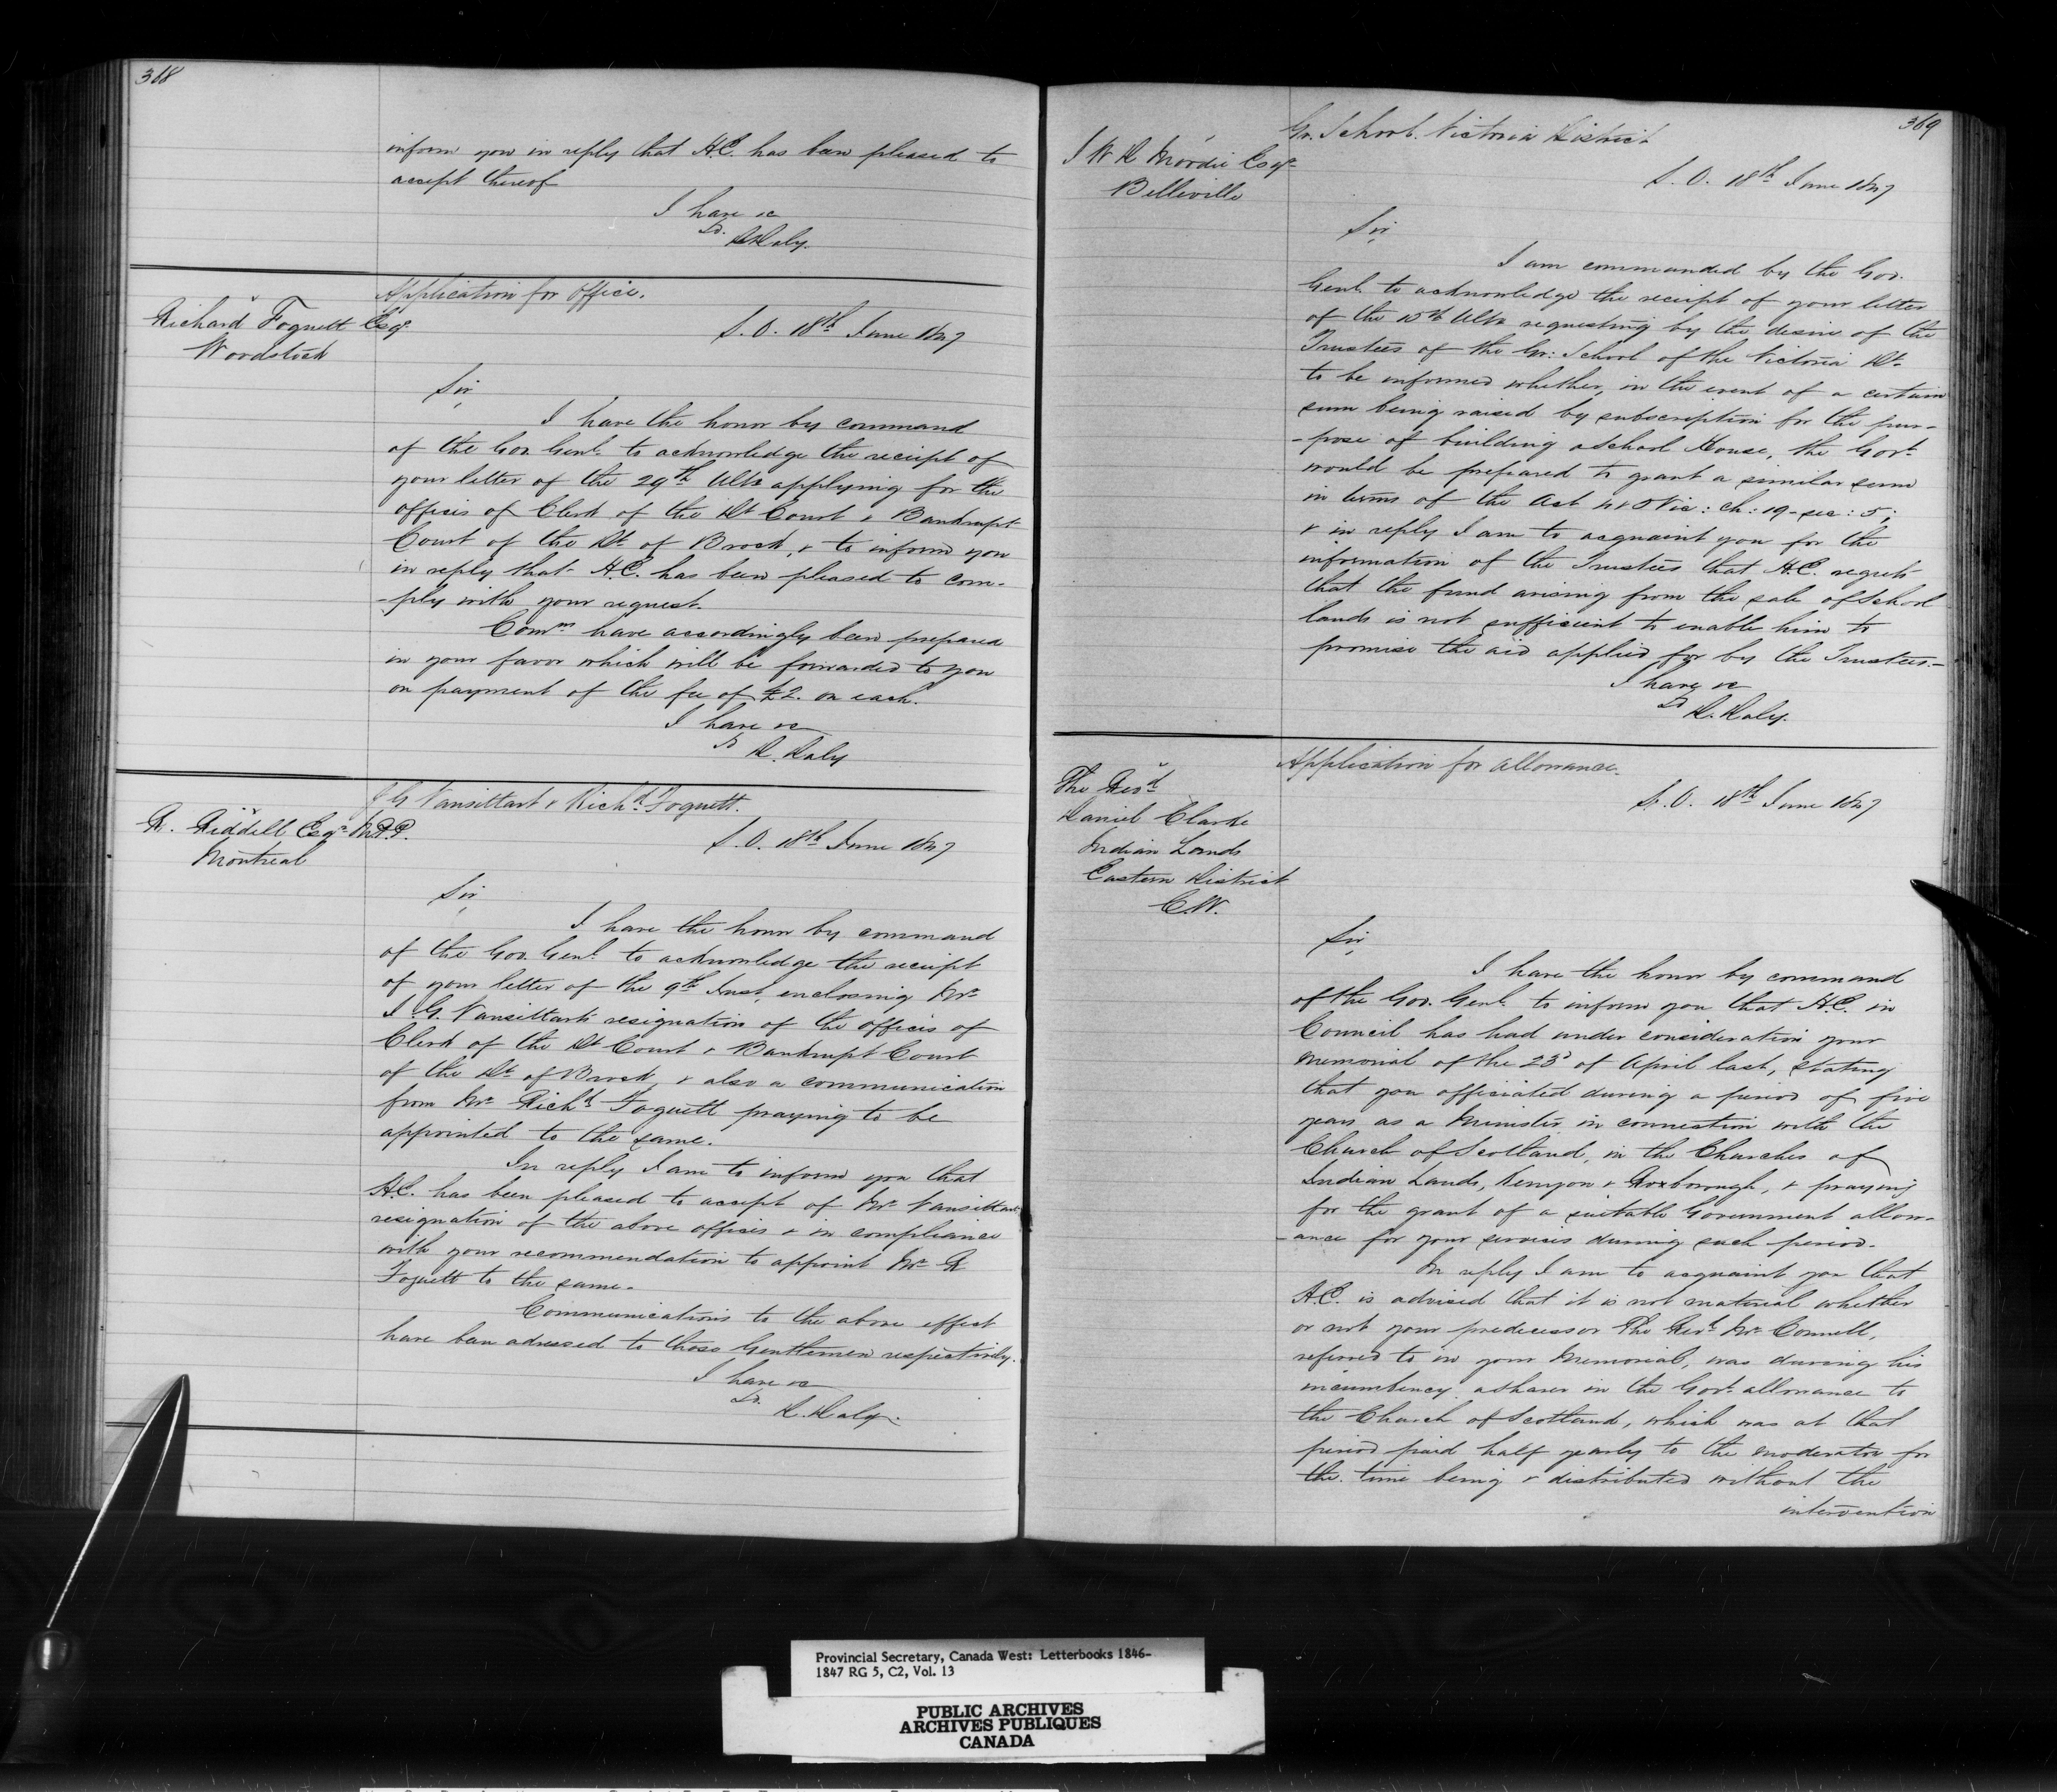 368
inform you in reply that H.E. has been pleased to
accept thereof
I have &c
Sd. D Daly.
Application for Office.
Richard Foquett Esqr.
Woodstock
S. O. 18th June 1847
Sir,
I have the honor by command
of the Gov. Genl. to acknowledge the receipt of
your letter of the 29th Ulto applying for the
offices of Clerk of the Dt Court & Bankrupt
Court of the Dt. of Brock, & to inform you
in reply that H.E. has been pleased to com-
-ply with your request.
Comns have accordingly been prepared
in your favor which will be forwarded to you
on payment of the fee of £2. on each.
I have &c
Sd D. Daly
J G Vansittart & Richd. Foquett.
R. Riddell Esqr. M.P.P.
Montreal
S. O. 18th June 1847
Sir,
I have the honor by command
of the Gov. Genl. to acknowledge the receipt
of your letter of the 9th Inst, enclosing Mr.
J. G. Vansittarts resignation of the offices of
Clerk of the Dt Court & Bankrupt Court
of the Dt. of Brock, & also a communication
from Mr. Richd. Foquett praying to be
appointed to the same.
In reply I am to inform you that
H.E. has been pleased to accept of Mr. Vansittarts
resignation of the above offices & in compliance
with your recommendation to appoint Mr. R
Foquett to the same.
Communications to the above effect
have been adressed to those Gentlemen respectively.
I have &c
Sd. D. Daly.
369
Gr. School. Victoria District
J W D Moodie Esqr.
Belleville
S. O. 18th June 1847
Sir,
I am commanded by the Gov.
Genl. to acknowledge the receipt of your letter
of the 15th Ulto requesting by the desire of the
Trustees of the Gr: School of the Victoria Dt.
to be informed whether, in the event of a certain
sum being raised by subscription for the pur-
-pose of building a School House, the Govt.
would be prepared to grant a similar sum
in terms of the Act 4 & 5 Vic: Ch: 19 - sec: 5;
& in reply I am to acquaint you for the
information of the Trustees that H.E. regrets
that the fund arising from the sale of School
lands is not sufficient to enable him to
promise the aid applied for by the Trustees.-
I have &c
Sd D. Daly.
Application for allowance.
The Revd.
Daniel Clarke
Indian Lands
Eastern District
C.W.
S. O. 18th June 1847
Sir,
I have the honor by command
of the Gov. Genl. to inform you that H.E. in
Council has had under consideration your
Memorial of the 23d of April last, stating
that you officiated during a period of five
years as a Minister in connection with the
Church of Scotland, in the Churches of
Indian Lands, Kenyon & Roxborough, & praying
for the grant of a suitable Government allow-
-ance for your services during such period.
In reply I am to acquaint you that
H.E. is advised that it is not material whether
or not your predecessor The Revd. Mr. Connell,
referred to in your Memorial, was during his
incumbency a sharer in the Govt. allowance to
the Church of Scotland, which was at that
period paid half yearly to the Moderator for
the time being & distributed without the
intervention
Provincial Secretary, Canada West: Letterbooks 1846-
1847 RG 5, C2, Vol. 13
PUBLIC ARCHIVES
ARCHIVES PUBLIQUES
CANADA